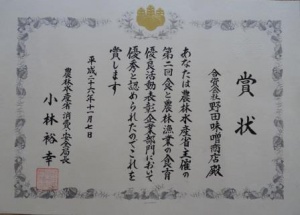 賞状
合資会社野田味噌商店殿
あなたは農林水産省主催の
第二回食と農林漁業の食育
優良活動表彰企業部門において
優秀と認められたのでこれを
賞します
平成二十六年十一月七日
農林水産省消費・安全局長
小林裕幸